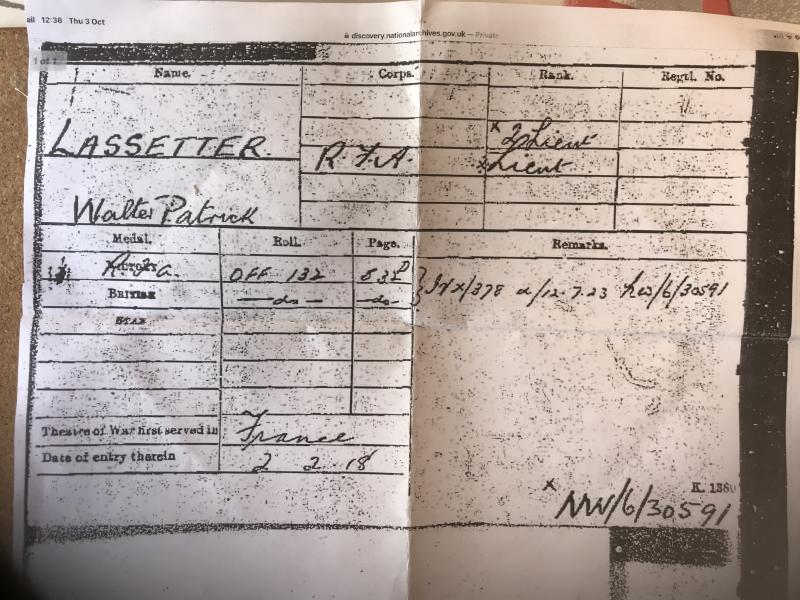 ail 12:38 Thu 3 Oct
discovery.nationalarchives.gov.uk — Private
1 of 1
Name. Corps. Rank. Regtl. No.
LASSETTER
R.F.A. x 2/Lieut
x Lieut
Walter Patrick
Medal. Roll. Page. Remarks.
VICTORY OFF 132 532D
BRITISH —do— —do— } IVX/378 d/12.7.23 NW/6/30591
STAR
Theatre of War first served in France
Date of entry therein 2 2 18
K. 1380
x NW/6/30591